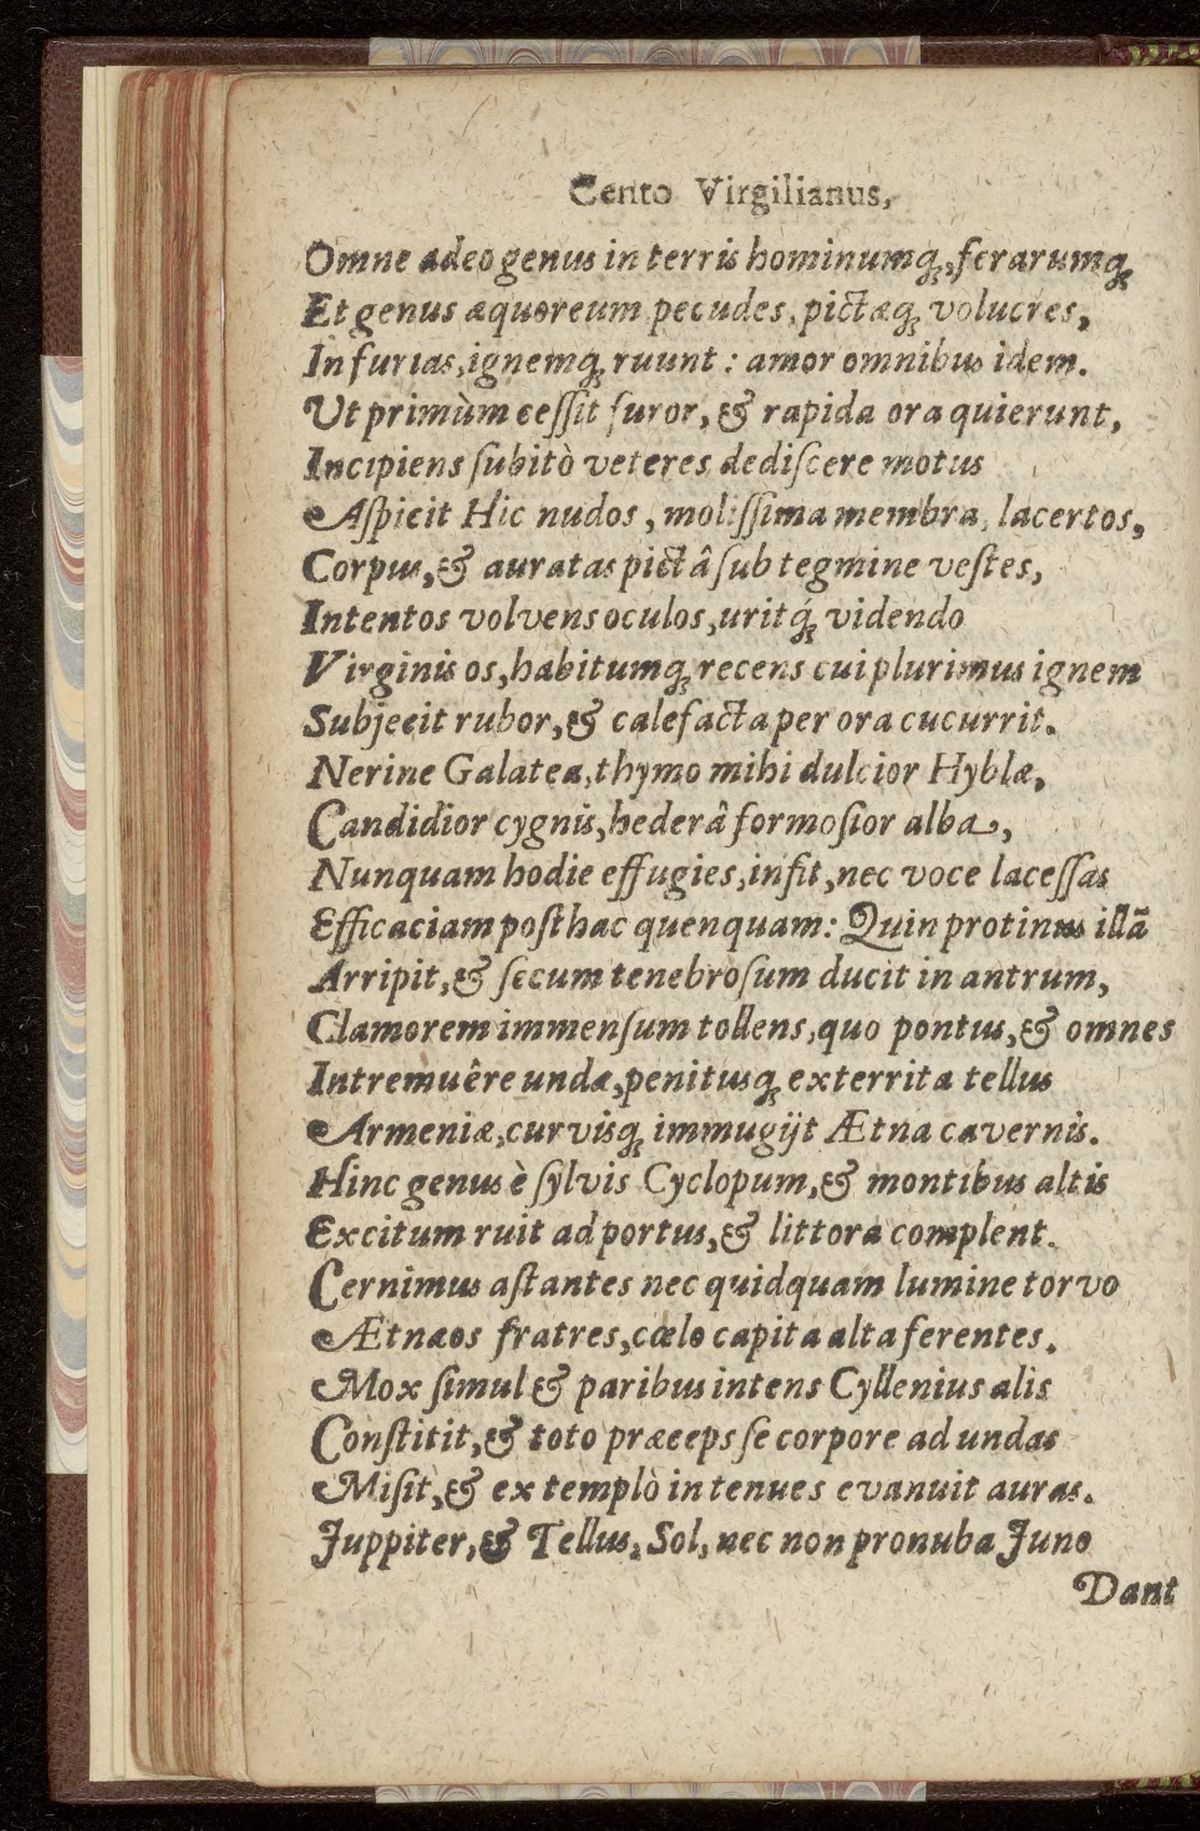 Cento Virgilianus,
Omne adeo genus in terris hominumq́;, ferarumq́;
Et genus æquoreum pecudes, pictæq́; volucres,
In furias, ignemq́; ruunt: amor omnibus idem.
Ut primùm cessit furor, & rapida ora quierunt,
Incipiens subitò veteres dediscere motus
Aspicit Hic nudos, molissima membra, lacertos,
Corpus, & auratas pictâ sub tegmine vestes,
Intentos volvens oculos, uritq́; videndo
Virginis os, habitumq́; recens cui plurimus ignem
Subjecit rubor, & calefacta per ora cucurrit.
Nerine Galatea, thymo mihi dulcior Hyblæ,
Candidior cygnis, hederâ formosior alba,
Nunquam hodie effugies, infit, nec voce lacessas
Efficaciam posthac quenquam: Quin protinus illã
Arripit, & secum tenebrosum ducit in antrum,
Clamorem immensum tollens, quo pontus, & omnes
Intremuêre undæ, penitusq́; exterrita tellus
Armeniæ, curvisq́; immugijt Ætna cavernis.
Hinc genus è sylvis Cyclopum, & montibus altis
Excitum ruit ad portus, & littora complent.
Cernimus astantes nec quidquam lumine torvo
Ætnæos fratres, cœlo capita alta ferentes.
Mox simul & paribus intens Cyllenius alis
Constitit, & toto præceps se corpore ad undas
Misit, & ex templò in tenues evanuit auras.
Juppiter, & Tellus, Sol, nec non pronuba Juno
Dant